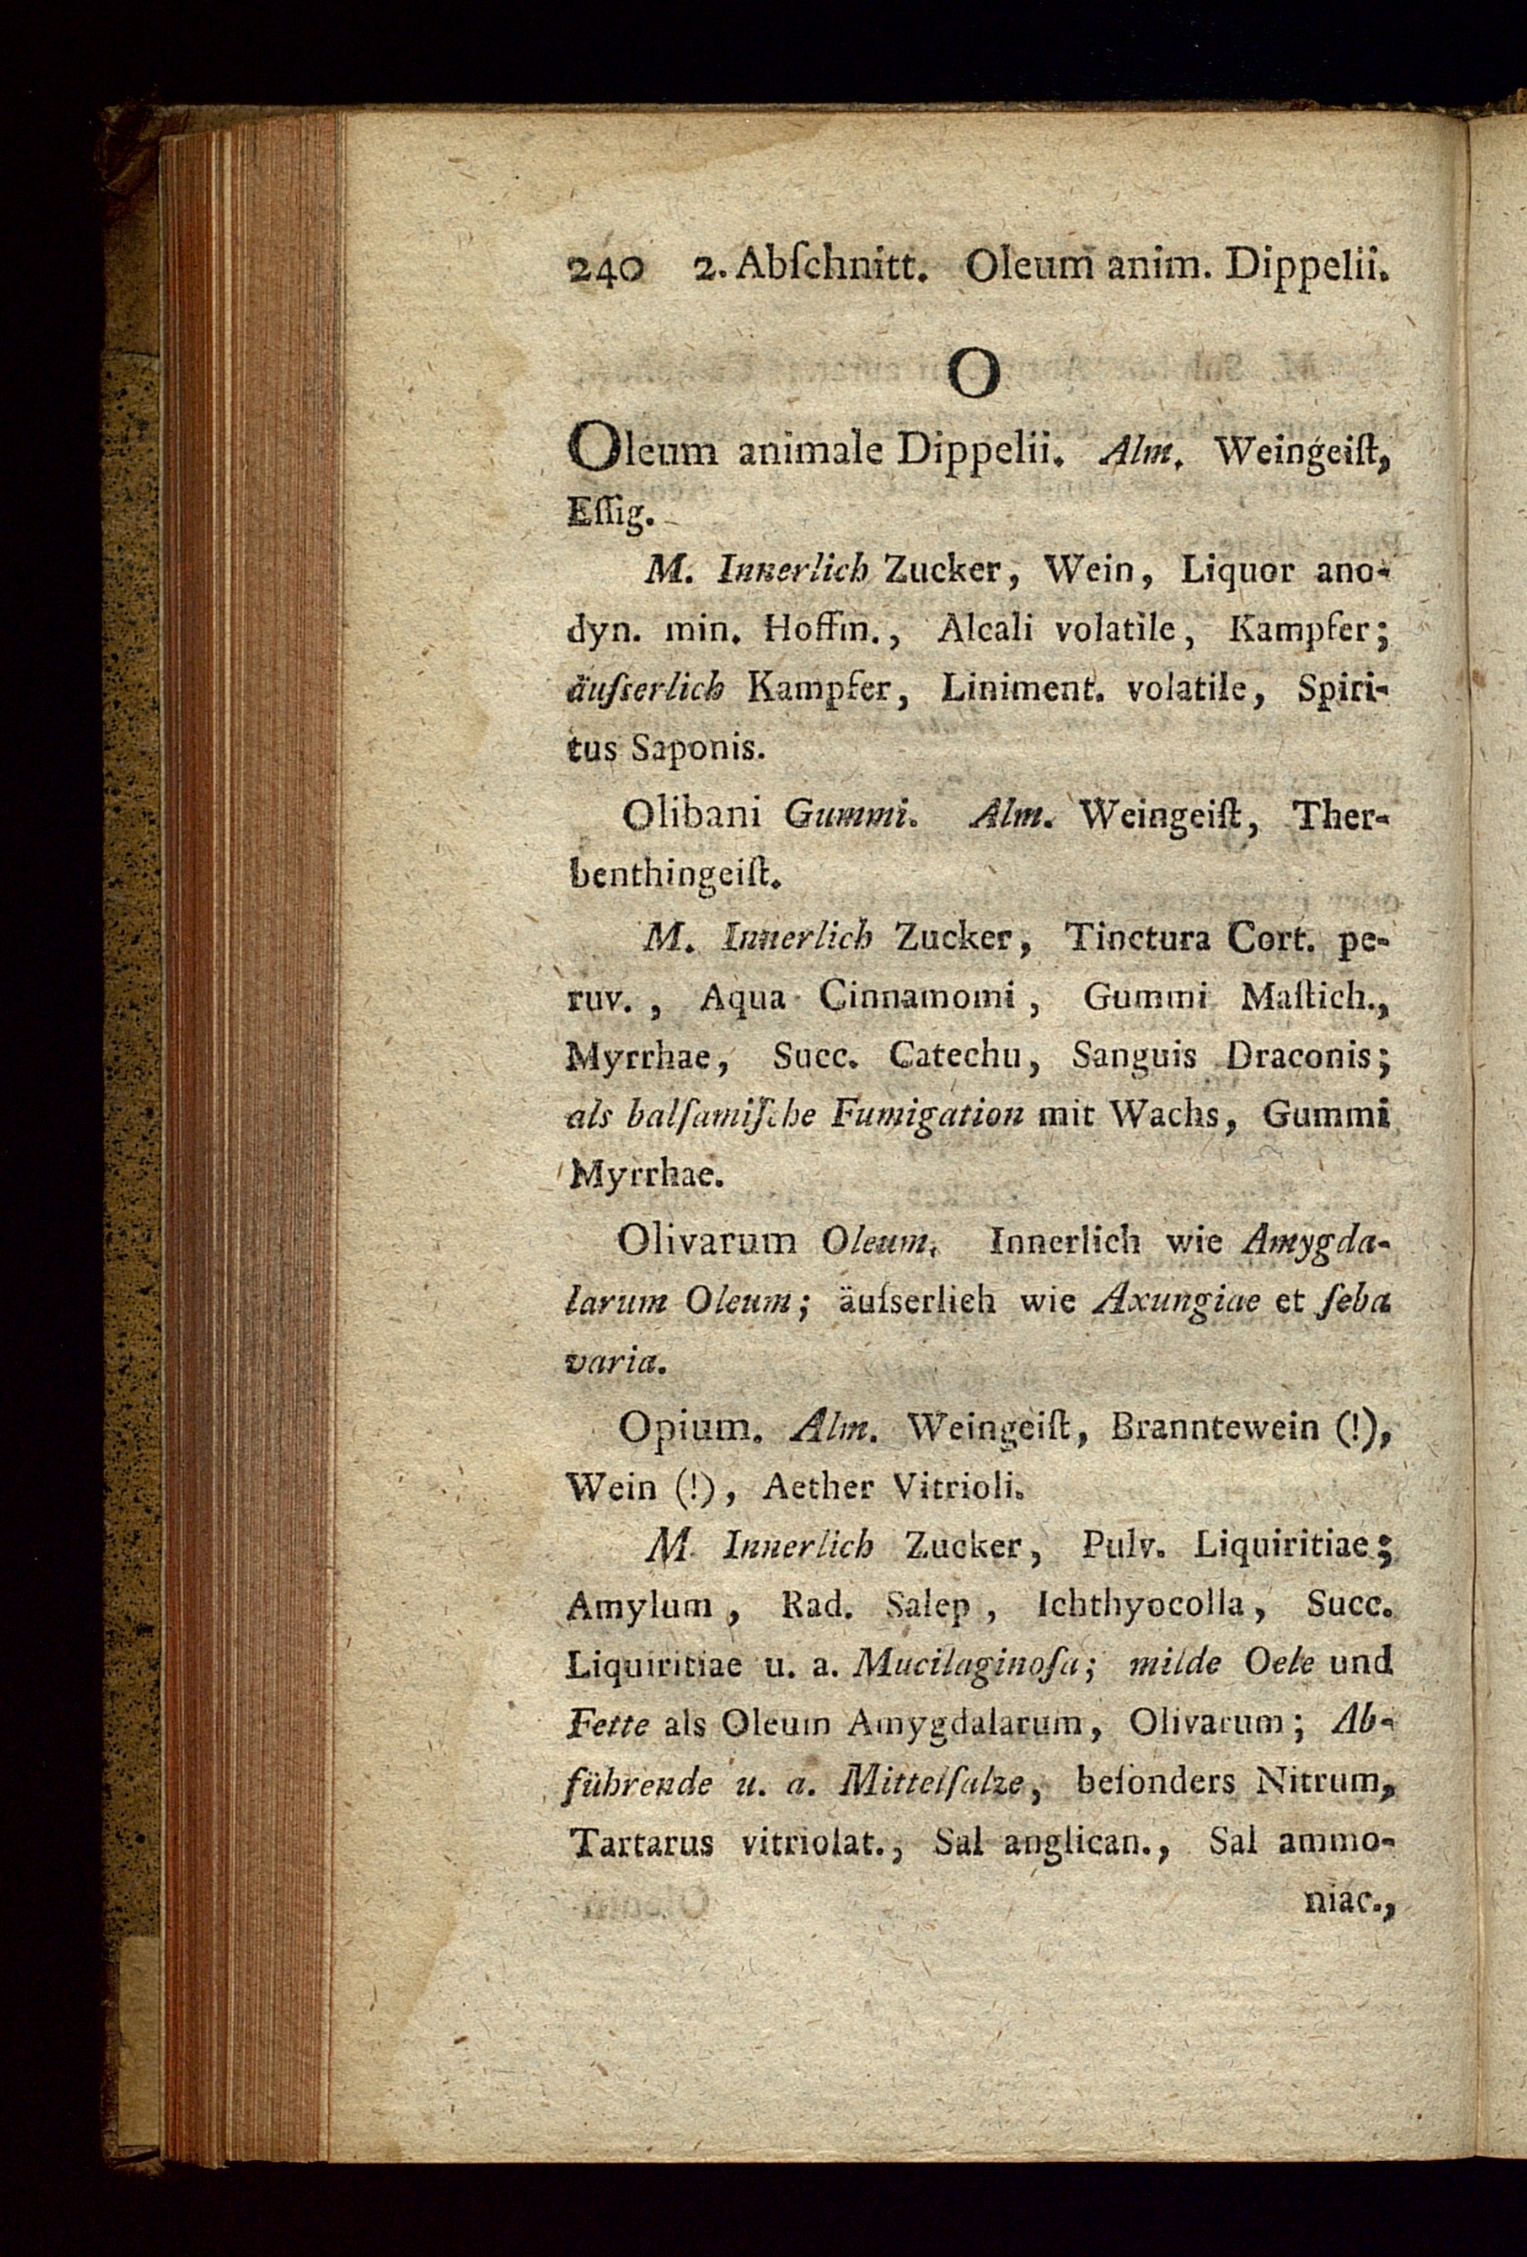 240 2. Abſchnitt. Oleum anim. Dippelii.
O
Oleum animale Dippelii. Alm. Weingeiſt,
Eſſig.
M. Innerlich Zucker, Wein, Liquor ano-
dyn. min. Hoffm., Alcali volatile, Kampfer;
äuſserlich Kampfer, Liniment. volatile, Spiri-
tus Saponis.
Olibani Gummi. Alm. Weingeiſt, Ther-
benthingeiſt.
M. Innerlich Zucker, Tinctura Cort. pe-
ruv., Aqua Cinnamomi, Gummi Maſtich.,
Myrrhae, Succ. Catechu, Sanguis Draconis;
als balſamiſche Fumigation mit Wachs, Gummi
Myrrhae.
Olivarum Oleum. Innerlich wie Amygda-
larum Oleum; äuſserlich wie Axungiae et ſeba
varia.
Opium. Alm. Weingeiſt, Branntewein (!),
Wein (!), Aether Vitrioli.
M. Innerlich Zucker, Pulv. Liquiritiae;
Amylum, Rad. Salep, Ichthyocolla, Succ.
Liquiritiae u. a. Mucilaginoſa; milde Oele und
Fette als Oleum Amygdalarum, Olivarum; Ab-
führende u. a. Mittelſalze, beſonders Nitrum,
Tartarus vitriolat., Sal anglican., Sal ammo-
niac.,